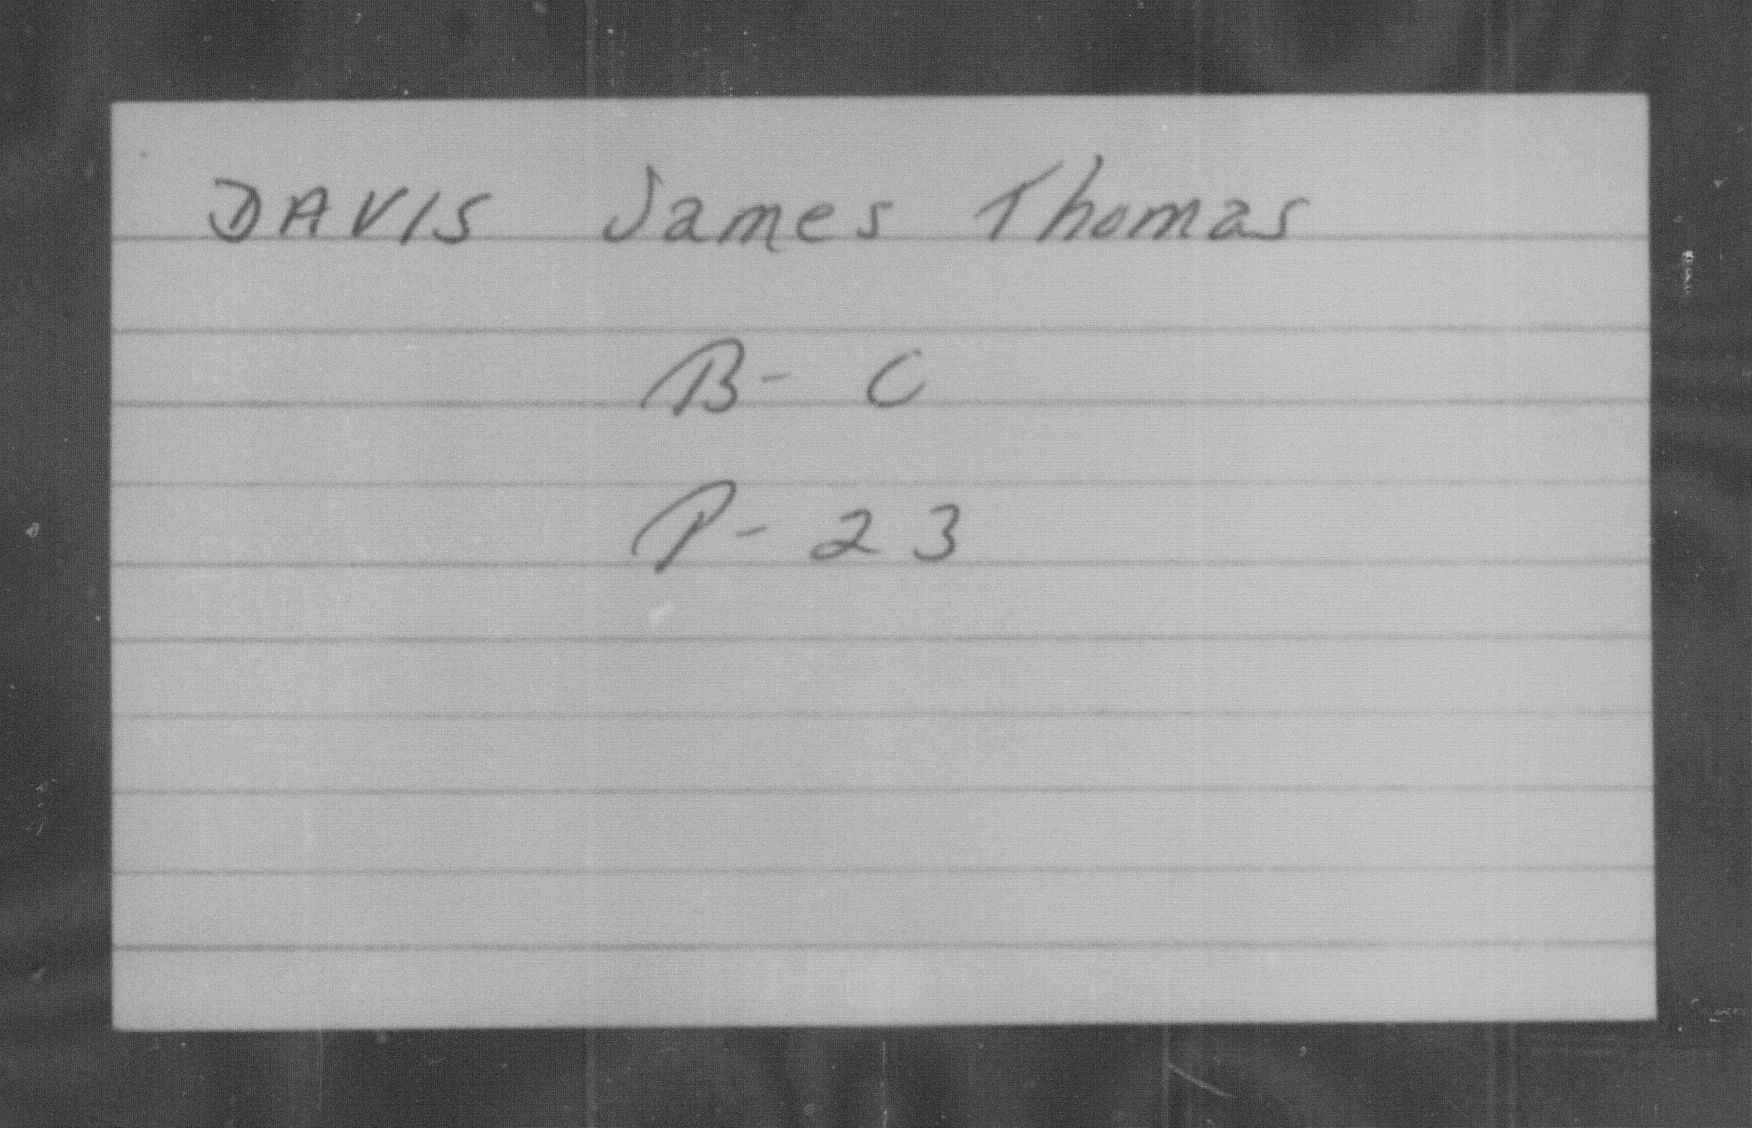 DAVIS James Thomas
B- C
P- 23